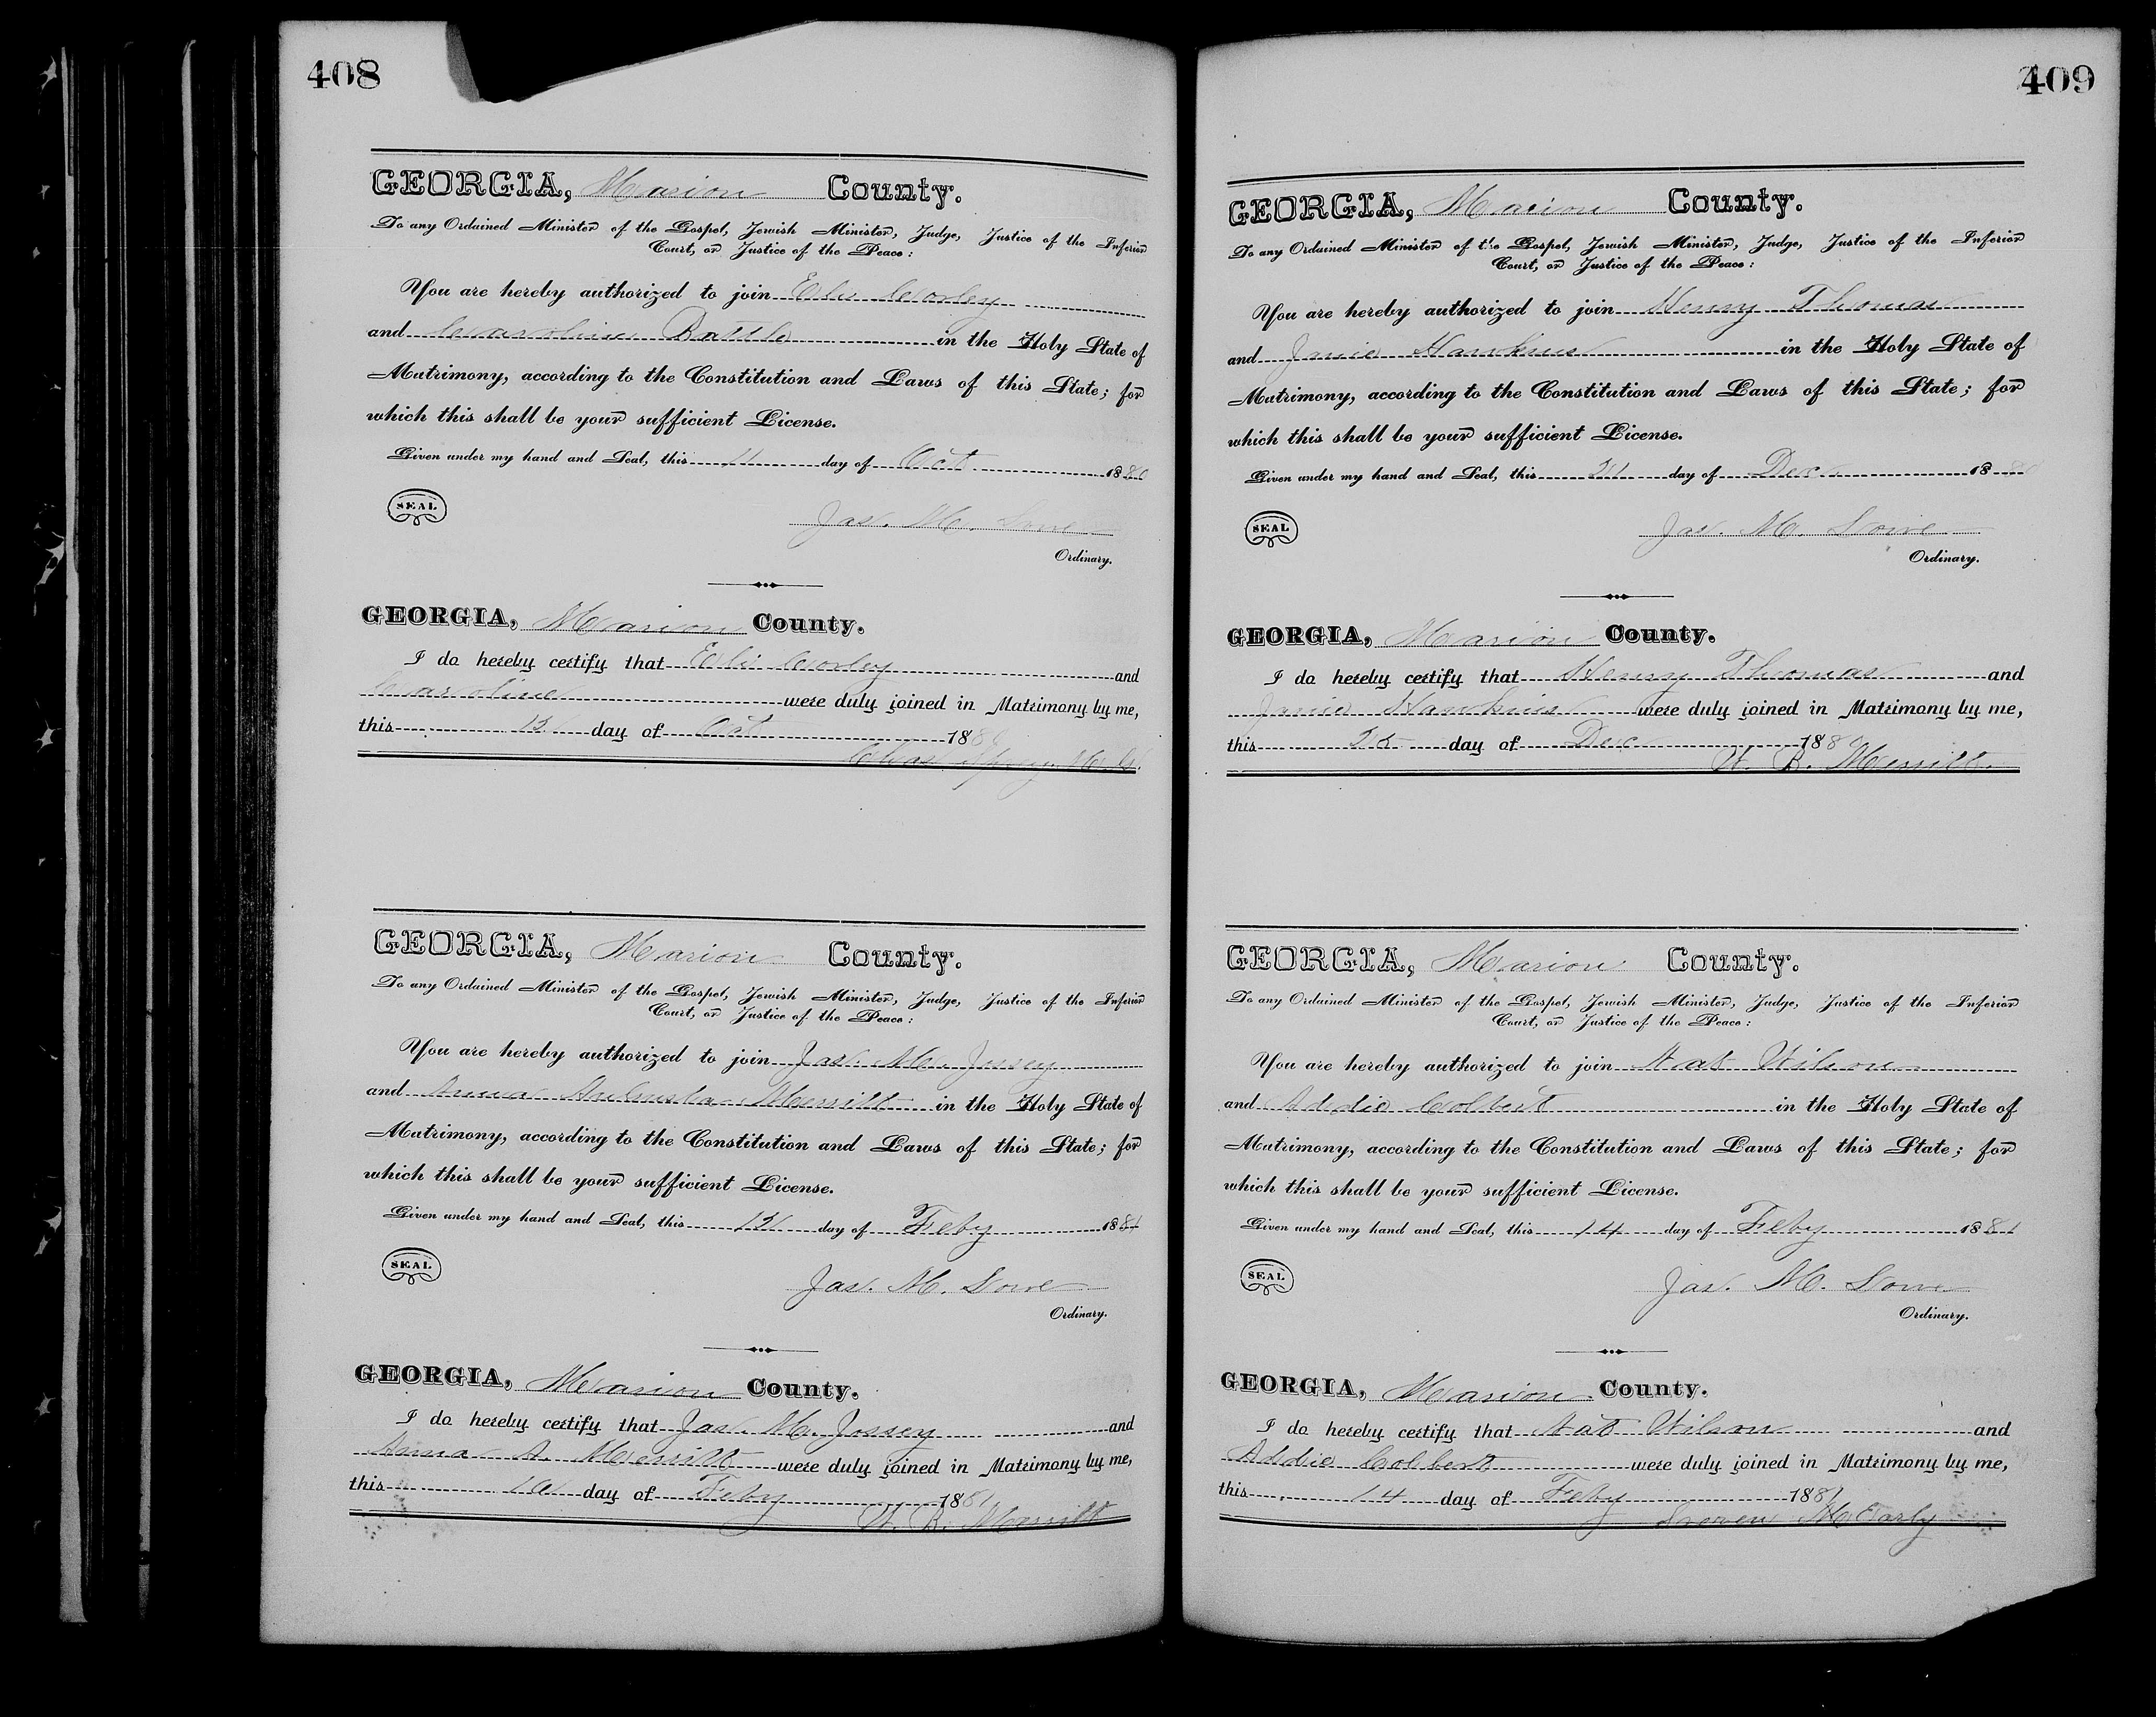 408
GEORGIA, Marion County.
To any Ordained Minister of the Gospel, Jewish Minister, Judge, Justice of the Inferior
Court, or Justice of the Peace:
You are hereby authorized to join Eli Corley
and Caroline Battle in the Holy State of
Matrimony, according to the Constitution and Laws of this State; for
which this shall be your sufficient License.
Given under my hand and Seal, this 11 day of Oct 1880
SEAL
Jas. M. Lowe
Ordinary.
GEORGIA, Marion County.
I do hereby certify that Eli Corley and
Caroline were duly joined in Matrimony by me,
this day of Oct 188
Chas M. G.
GEORGIA, Marion County.
To any Ordained Minister of the Gospel, Jewish Minister, Judge, Justice of the Inferior
Court, or Justice of the Peace:
You are hereby authorized to join Jas. M. Jossey
and Anna Merritt in the Holy State of
Matrimony, according to the Constitution and Laws of this State; for
which this shall be your sufficient License.
Given under my hand and Seal, this day of Feby 1881
SEAL
Jas. M. Lowe
Ordinary.
GEORGIA, Marion County.
I do hereby certify that Jas. M. Jossey and
Anna A. Merritt were duly joined in Matrimony by me,
this day of Feby 1881
W. B. Merritt
409
GEORGIA, Marion County.
To any Ordained Minister of the Gospel, Jewish Minister, Judge, Justice of the Inferior
Court, or Justice of the Peace:
You are hereby authorized to join Henry Thomas
and Janie Hawkins in the Holy State of
Matrimony, according to the Constitution and Laws of this State; for
which this shall be your sufficient License.
Given under my hand and Seal, this day of Dec 1880
SEAL
Jas. M. Lowe
Ordinary.
GEORGIA, Marion County.
I do hereby certify that Henry Thomas and
Janie Hawkins were duly joined in Matrimony by me,
this 25 day of Dec 1880
W. B. Merritt.
GEORGIA, Marion County.
To any Ordained Minister of the Gospel, Jewish Minister, Judge, Justice of the Inferior
Court, or Justice of the Peace:
You are hereby authorized to join Nat Wilson
and Addie Colbert in the Holy State of
Matrimony, according to the Constitution and Laws of this State; for
which this shall be your sufficient License.
Given under my hand and Seal, this 14 day of Feby 1881
SEAL
Jas. M. Lowe
Ordinary.
GEORGIA, Marion County.
I do hereby certify that Nat Wilson and
Addie Colbert were duly joined in Matrimony by me,
this 14 day of Feby 1881
McCarly